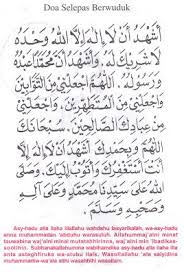 Doa Selepas Berwuduk
أَشْهَدُ أَنْ لَا إِلَهَ إِلَّا اللهُ وَحْدَهُ
لَا شَرِيْكَ لَهُ. وَأَشْهَدُ أَنَّ مُحَمَّدًا عَبْدُهُ
وَرَسُوْلُهُ. اَللّٰهُمَّ اجْعَلْنِيْ مِنَ التَّوَّابِيْنَ
وَاجْعَلْنِيْ مِنَ الْمُتَطَهِّرِيْنَ. وَاجْعَلْنِيْ
مِنْ عِبَادِكَ الصَّالِحِيْنَ. سُبْحَانَكَ
اللّٰهُمَّ وَبِحَمْدِكَ أَشْهَدُ أَنْ لَا إِلَهَ إِلَّا
أَنْتَ أَسْتَغْفِرُكَ وَأَتُوْبُ إِلَيْكَ. وَصَلَّى
اللهُ عَلَى سَيِّدِنَا مُحَمَّدٍ وَعَلَى آلِهِ
وَصَحْبِهِ وَسَلَّمَ.
Asy-hadu alla ilaaha illallahu wahdahu laasyariikalah, wa-asy-hadu
anna muhammadan 'abduhu warasuuluh. Allahummaj'alni minat
tauwaabina waj'alni minal mutatahhirinna, waj'alni min 'ibadikas-
soolihin. Subhanakallahumma wabihamdika asy-hadu alla ilaha illa
anta astaghfiruka wa-atubu ilaik. Wasollallahu 'ala saiyidina
muhammadiw-wa'ala alihi wasahbihi wasallam.